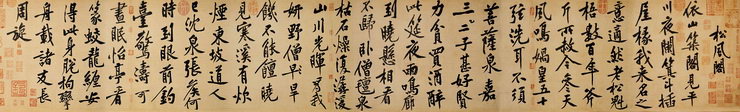 松風閣
依山築閣見平
川夜闌箕斗插
屋椽我來名之
意適然老松魁
梧數百年斧
斤所赦今參天
風鳴媧皇五十
弦洗耳不須
菩薩泉嘉
二三子甚好賢
力貧買酒醉
此筵夜雨鳴廊
到曉懸相看
不歸臥僧氈泉
枯石燥復潺湲
山川光輝為我
妍野僧旱
饑不能饘曉
見寒溪有炊
煙東坡道人
已沈泉張侯何
時到眼前釣
臺驚濤可
晝眠怡亭看
篆蛟龍纏安
得此身脫拘攣
舟載諸友長
周旋